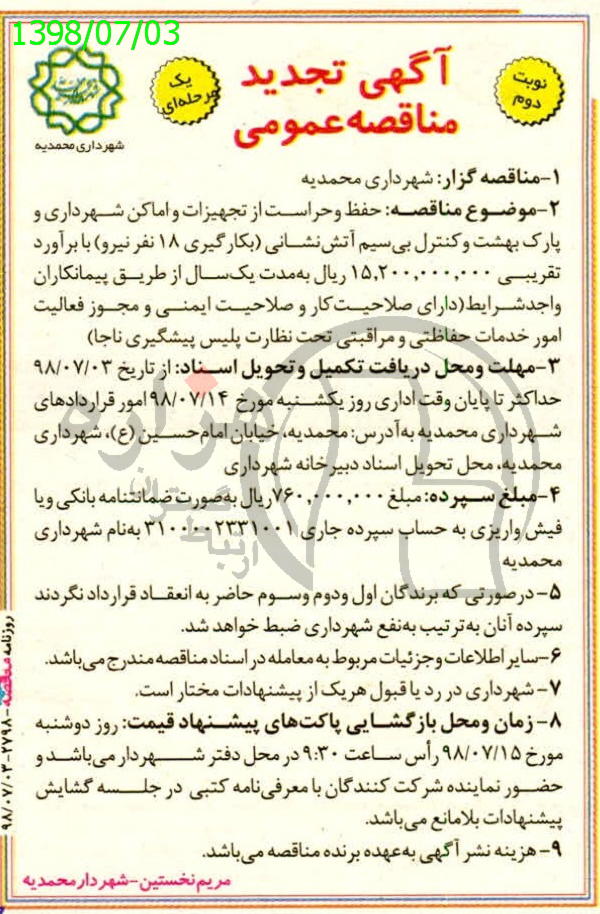 1398/07/03
آگهی تجدید
مناقصه عمومی
نوبت
دوم
یک
مرحله‌ای
شهرداری محمدیه
۱-مناقصه گزار: شهرداری محمدیه
۲-موضوع مناقصه: حفظ وحراست از تجهیزات و اماکن شهرداری و
پارک بهشت و کنترل بی‌سیم آتش‌نشانی (بکارگیری ۱۸ نفر نیرو) با برآورد
تقریبی ۱۵,۲۰۰,۰۰۰,۰۰۰ ریال به‌مدت یک‌سال از طریق پیمانکاران
واجدشرایط(دارای صلاحیت‌کار و صلاحیت ایمنی و مجوز فعالیت
امور خدمات حفاظتی و مراقبتی تحت نظارت پلیس پیشگیری ناجا)
۳-مهلت ومحل دریافت تکمیل و تحویل اسناد: از تاریخ ۹۸/۰۷/۰۳
حداکثر تا پایان وقت اداری روز یکشنبه مورخ ۹۸/۰۷/۱۴ امور قراردادهای
شهرداری محمدیه به‌آدرس: محمدیه، خیابان امام‌حسین (ع)، شهرداری
محمدیه، محل تحویل اسناد دبیرخانه شهرداری
۴-مبلغ سپرده: مبلغ ۷۶۰,۰۰۰,۰۰۰ریال به‌صورت ضمانتنامه بانکی ویا
فیش واریزی به حساب سپرده جاری ۳۱۰۰۰۰۲۳۳۱۰۰۱ به‌نام شهرداری
محمدیه
۵-درصورتی که برندگان اول ودوم وسوم حاضر به انعقاد قرارداد نگردند
سپرده آنان به‌ترتیب به‌نفع شهرداری ضبط خواهد شد.
۶-سایر اطلاعات وجزئیات مربوط به معامله در اسناد مناقصه مندرج می‌باشد.
۷- شهرداری در رد یا قبول هریک از پیشنهادات مختار است.
۸- زمان ومحل بازگشایی پاکت‌های پیشنهاد قیمت: روز دوشنبه
مورخ ۹۸/۰۷/۱۵ رأس ساعت ۹:۳۰ در محل دفتر شهردار می‌باشد و
حضور نماینده شرکت کنندگان با معرفی‌نامه کتبی در جلسه گشایش
پیشنهادات بلامانع می‌باشد.
۹- هزینه نشر آگهی به‌عهده برنده مناقصه می‌باشد.
مریم‌نخستین-شهردارمحمدیه
روزنامه مناقصه-۲۷۹۸-۹۸/۰۷/۰۳
هزاره
ارتباط گستران